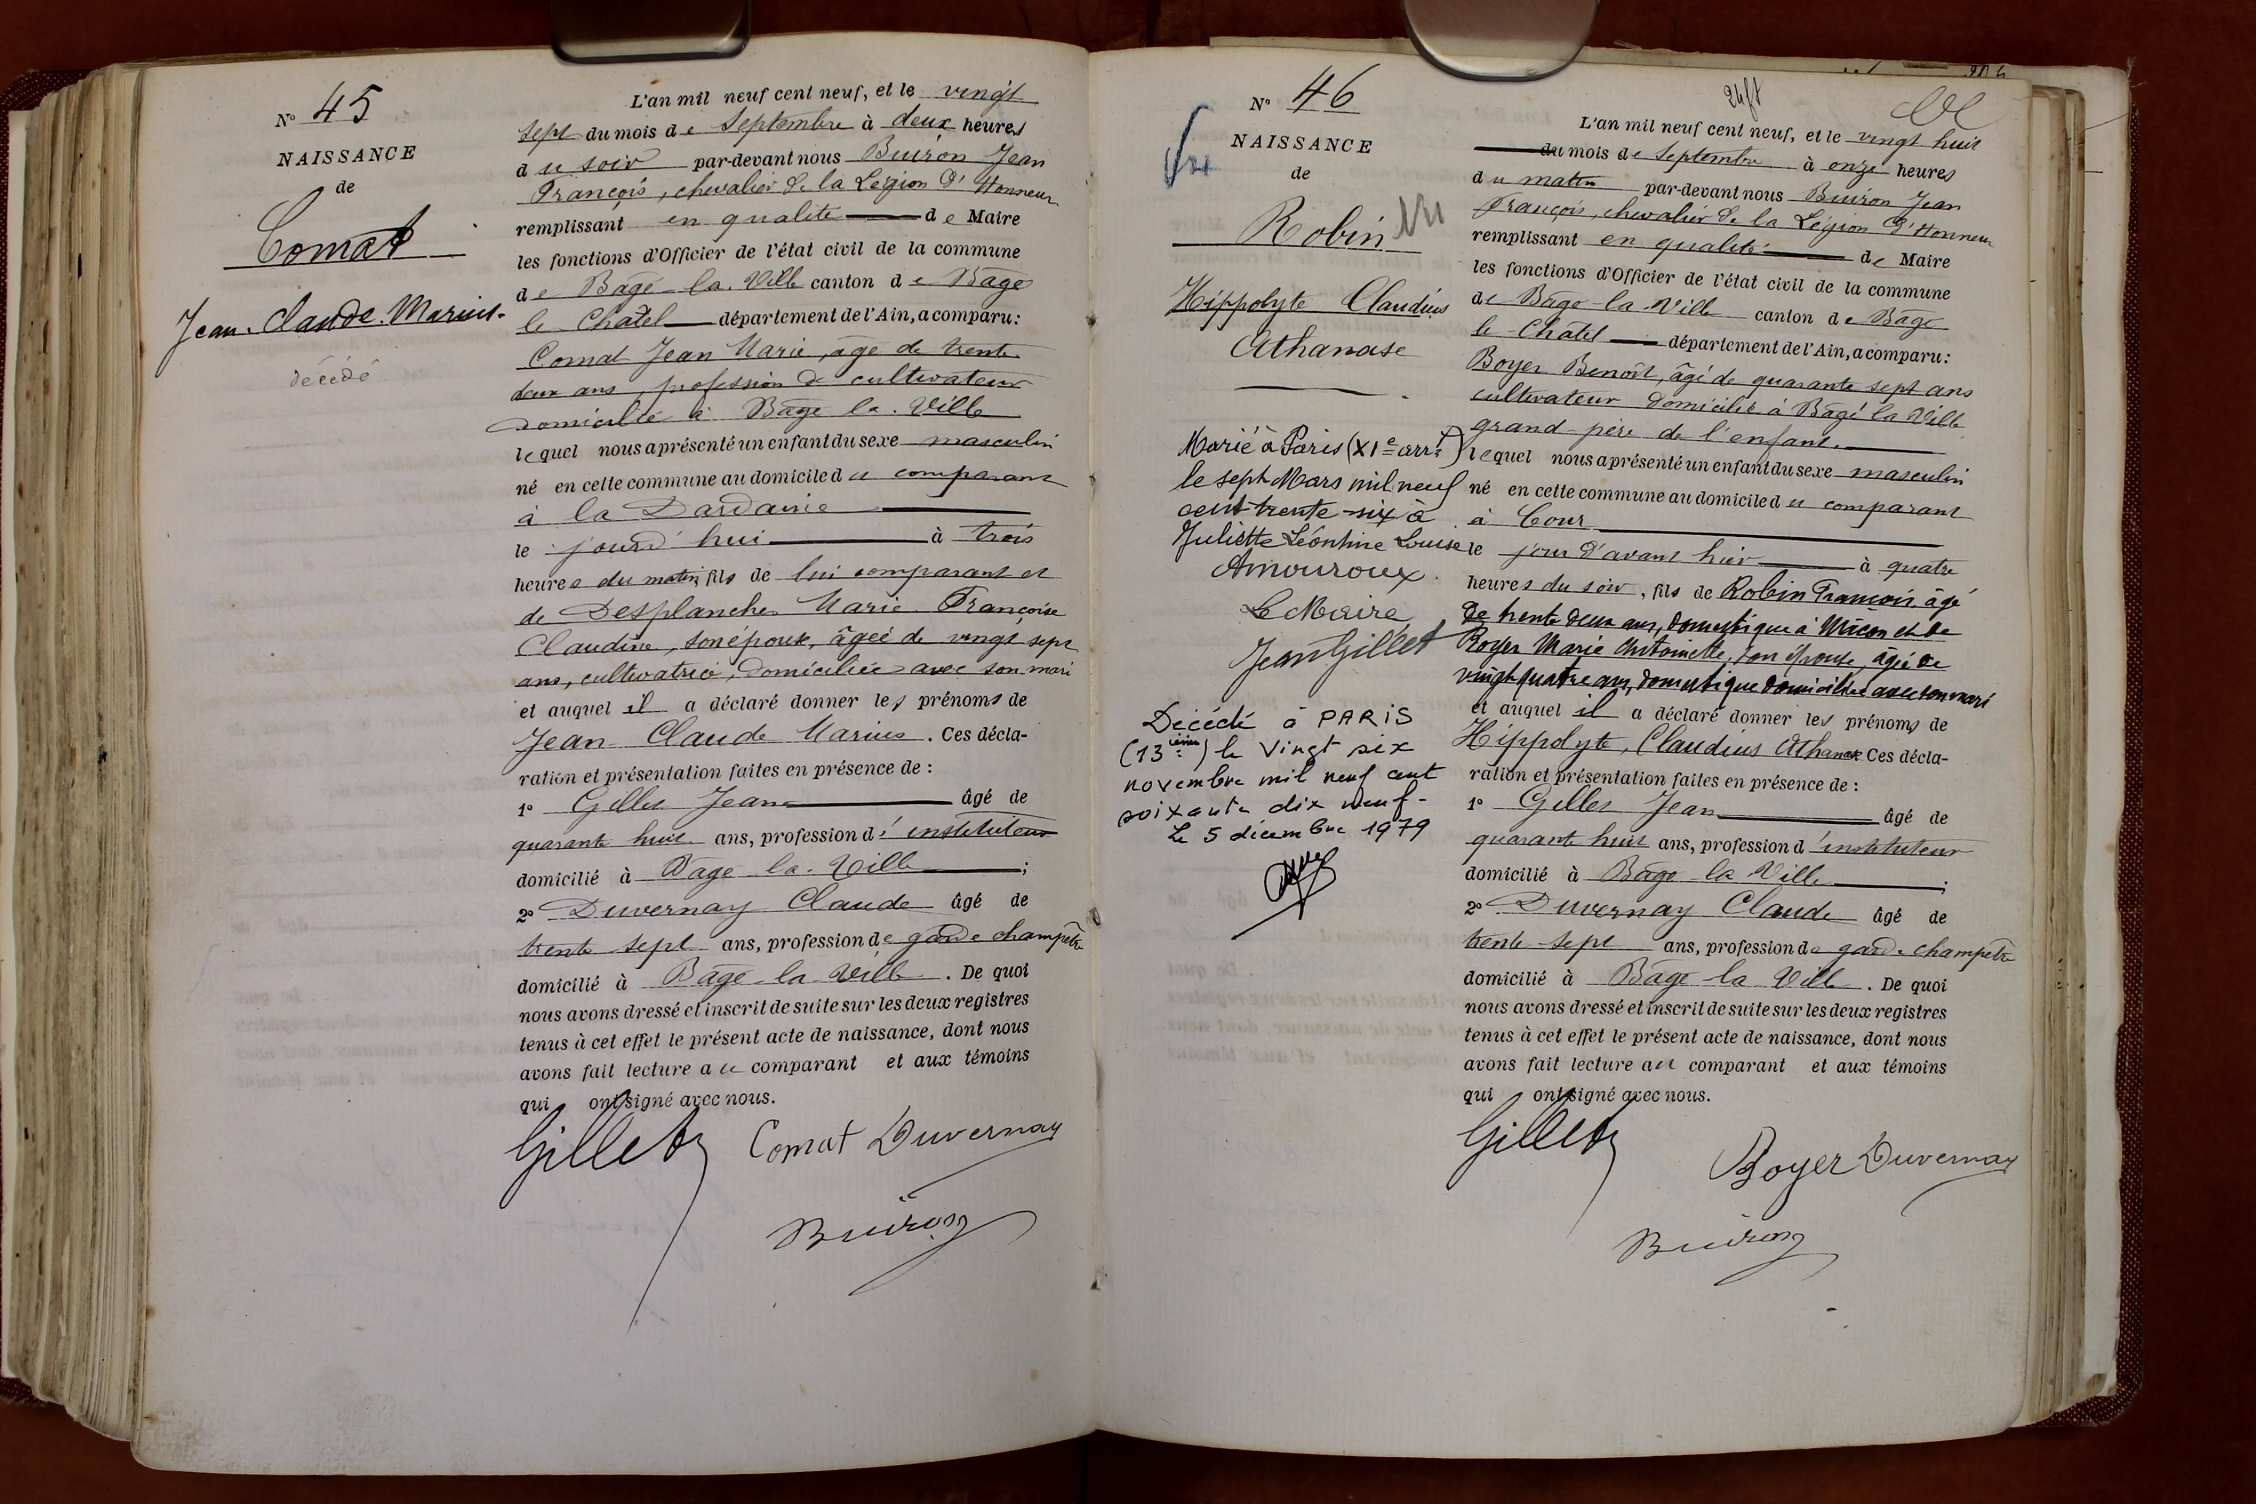 Nº 45
NAISSANCE
de
Comat
Jean. Claude. Marius.
décédé
L'an mil neuf cent neuf, et le vingt
sept du mois de Septembre à deux heures
du soir par-devant nous Buiron Jean
François, chevalier de la Légion d'Honneur
remplissant en qualité de Maire
les fonctions d'Officier de l'état civil de la commune
de Bâgé-la-Ville canton de Bâgé
le Châtel département de l'Ain, a comparu:
Comat Jean Marie, âgé de trente
deux ans, profession de cultivateur
domicilié à Bâgé la. Ville
lequel nous a présenté un enfant du sexe masculin
né en cette commune au domicile du comparant
à la Dardaine
le jourd'hui à trois
heures du matin, fils de lui comparant et
de Desplanches Marie Françoise
Claudine, son épouse, âgée de vingt sept
ans, cultivatrice, domiciliée avec son mari
et auquel il a déclaré donner les prénoms de
Jean Claude Marius. Ces décla-
ration et présentation faites en présence de:
1º Gillet Jean âgé de
quarante huit ans, profession d'instituteur
domicilié à Bâgé la. Ville;
2º Duvernay Claude âgé de
trente sept ans, profession de garde champêtre
domicilié à Bâgé la Ville. De quoi
nous avons dressé et inscrit de suite sur les deux registres
tenus à cet effet le présent acte de naissance, dont nous
avons fait lecture au comparant et aux témoins
qui ont signé avec nous.
Gillet Comat Duvernay
Buiron
Nº 46
NAISSANCE
de
Robin
Hippolyte Claudius
Athanase
Marié à Paris (XIe arrt)
le sept Mars mil neuf
cent trente-six à
Juliette Léontine Louise
Amouroux.
Le Maire
Jean Gillet
Décédé à PARIS
(13ième) le vingt six
novembre mil neuf cent
soixante dix neuf-
Le 5 décembre 1979
L'an mil neuf cent neuf, et le vingt huit
du mois de Septembre à onze heures
du matin par-devant nous Buiron Jean
François, chevalier de la Légion d'Honneur
remplissant en qualité de Maire
les fonctions d'Officier de l'état civil de la commune
de Bâgé-la Ville canton de Bâgé
le-Châtel département de l'Ain, a comparu:
Boyer Benoît, âgé de quarante sept ans
cultivateur domicilié à Bâgé la Ville
grand-père de l'enfant.
lequel nous a présenté un enfant du sexe masculin
né en cette commune au domicile du comparant
à Cour
le jour d'avant hier à quatre
heures du soir, fils de Robin François, âgé
de trente deux ans, domestique à Mâcon et de
Boyer Marie Antoinette, son épouse, âgée de
vingt quatre ans, domestique domiciliée avec son mari
et auquel il a déclaré donner les prénoms de
Hippolyte, Claudius Athanase Ces décla-
ration et présentation faites en présence de:
1º Gillet Jean âgé de
quarante huit ans, profession d'instituteur
domicilié à Bâgé la Ville;
2º Duvernay Claude âgé de
trente-sept ans, profession de garde-champêtre
domicilié à Bâgé-la Ville. De quoi
nous avons dressé et inscrit de suite sur les deux registres
tenus à cet effet le présent acte de naissance, dont nous
avons fait lecture au comparant et aux témoins
qui ont signé avec nous.
Gillet Boyer Duvernay
Buiron